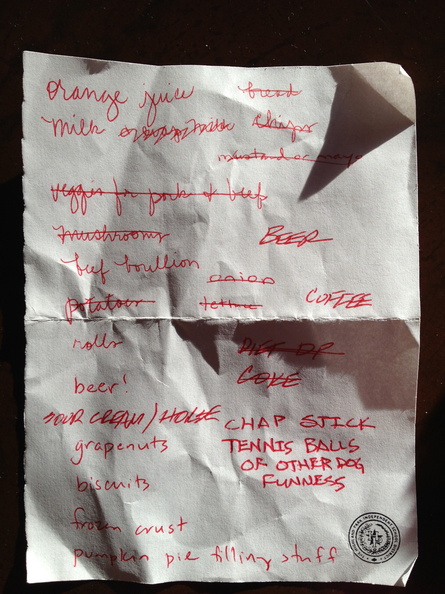 orange juice
bread
milk
chips
mustard or mayo
veggies for pork & beef
mushrooms
BEER
beef boullion
onion
potatoes
lettuce
COFFEE
rolls
DIET DR
COKE
beer!
SOUR CREAM / HORSE
CHAP STICK
grapenuts
TENNIS BALLS
OF OTHER DOG
biscuits
FUNNESS
frozen crust
pumpkin pie filling stuff